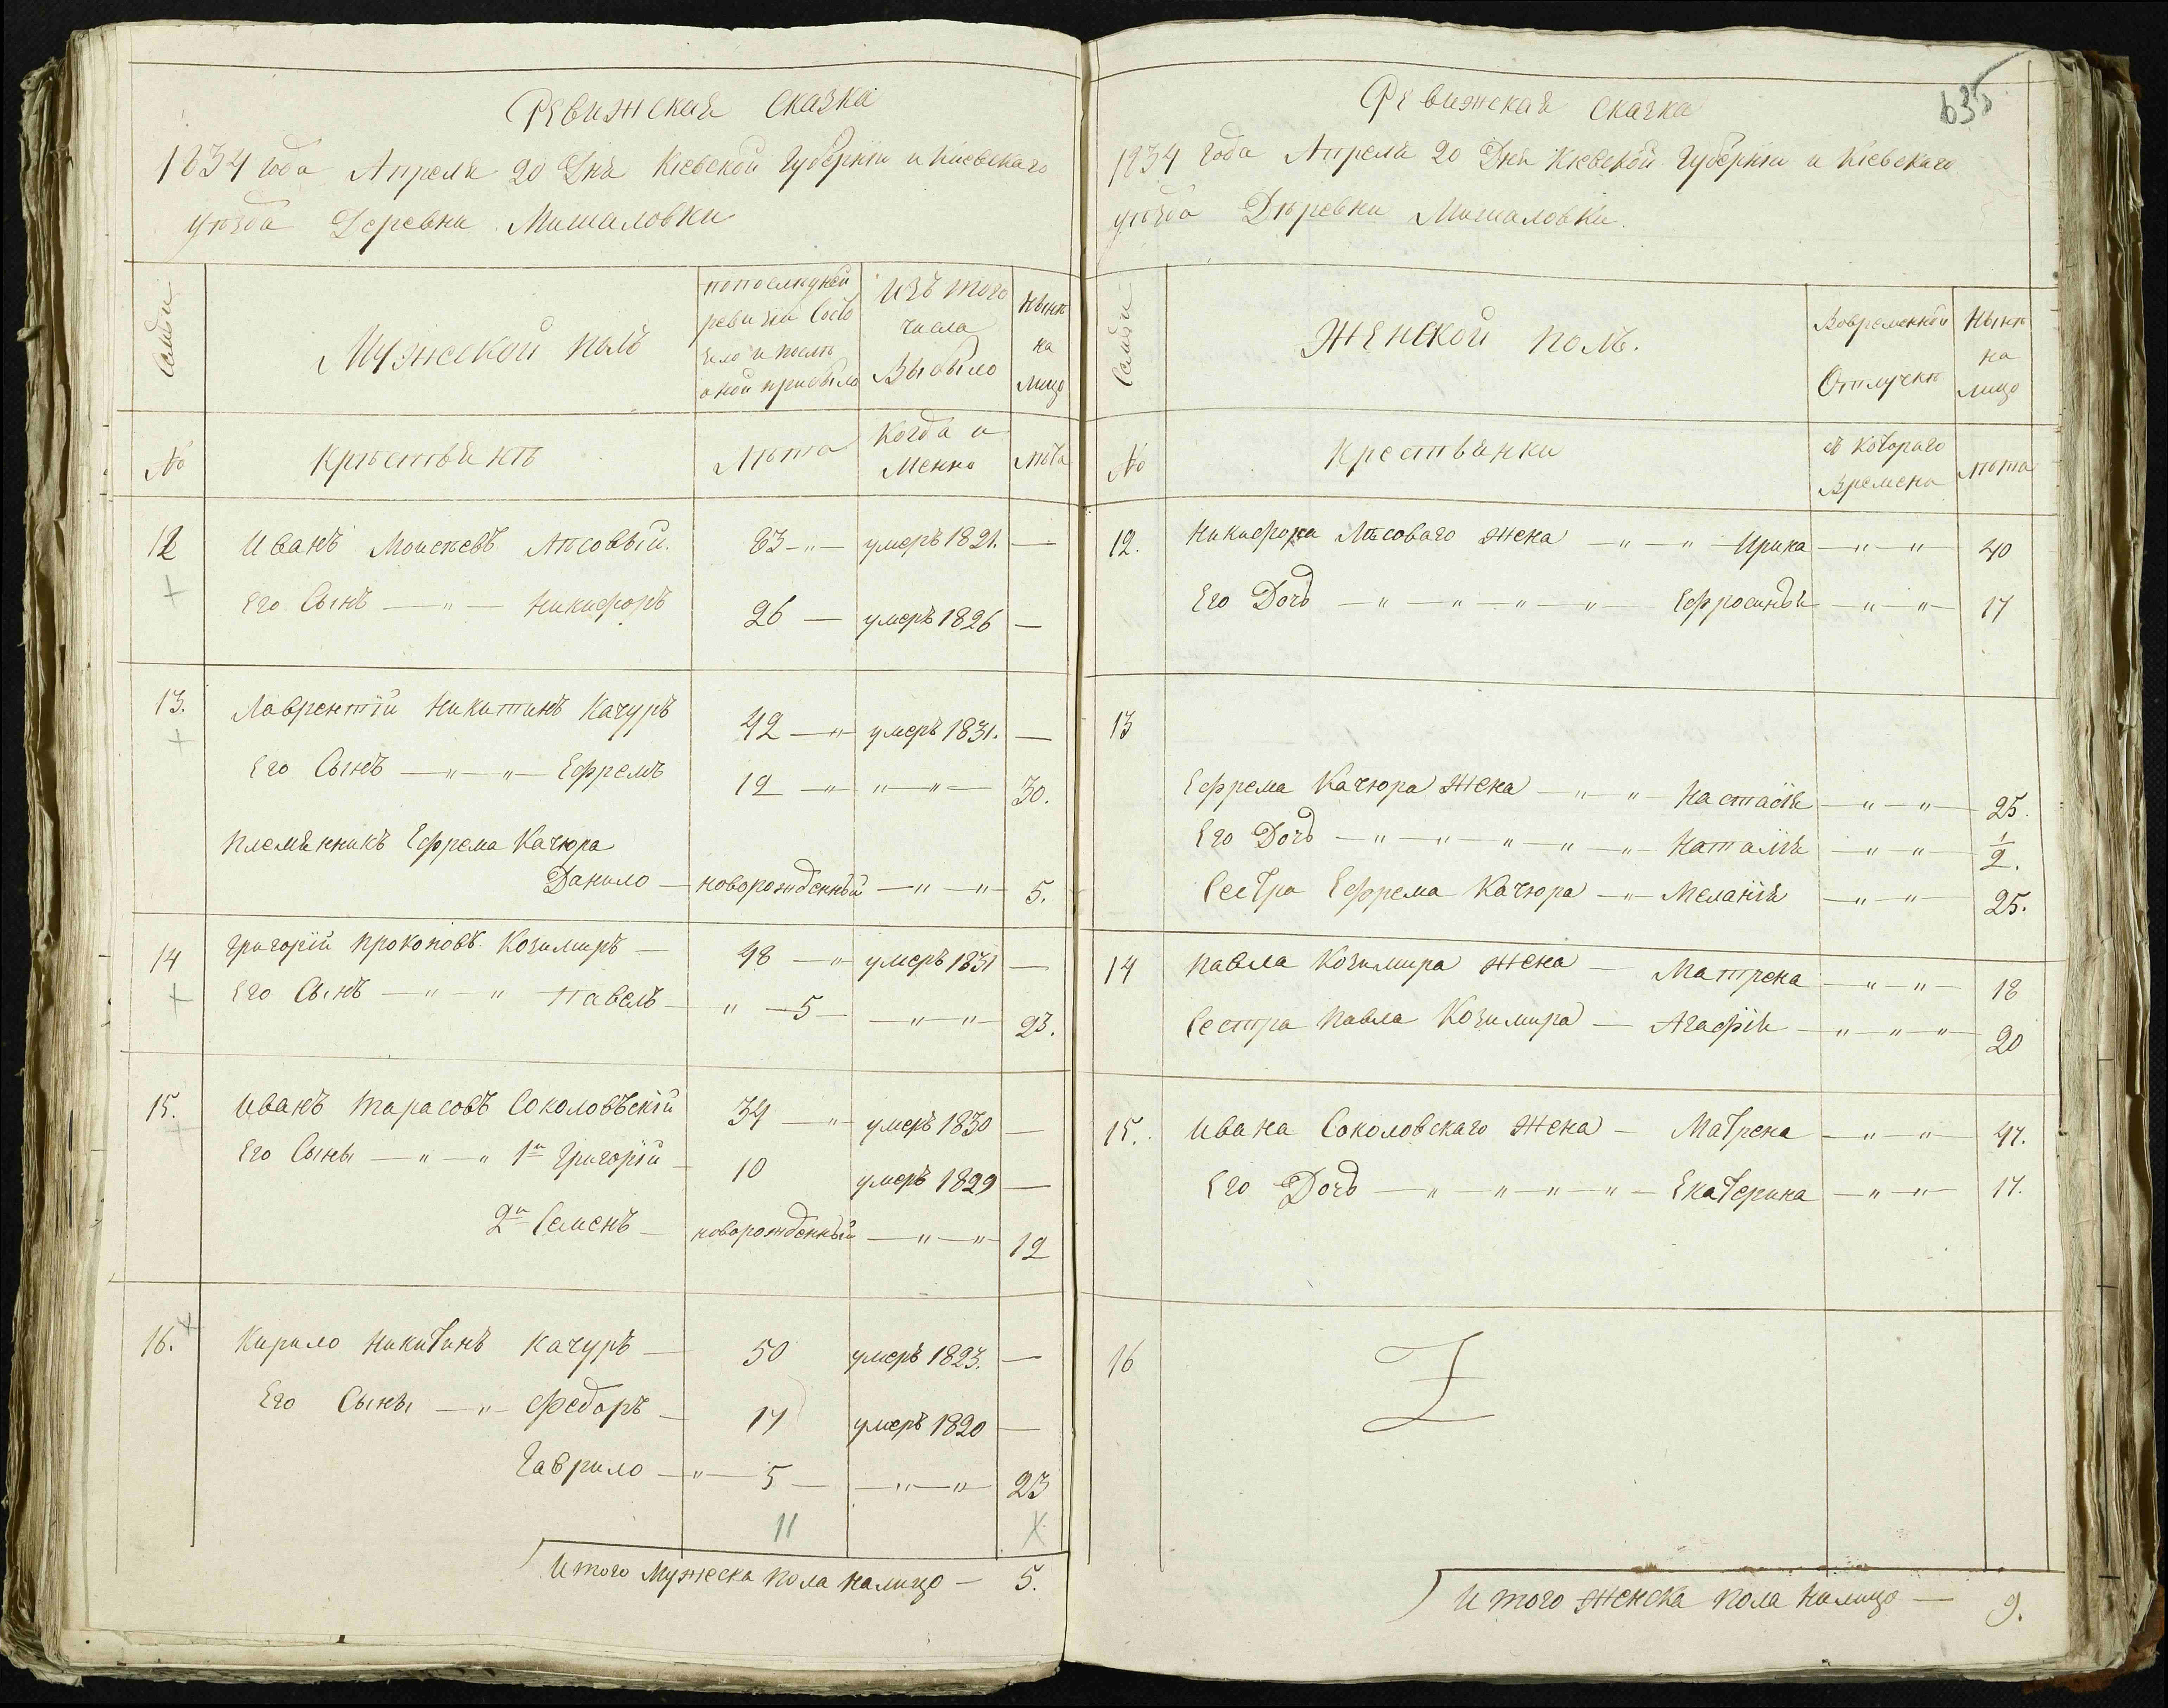 Ревижская сказка
1834 года Апреля 20 Дня Кіевской Губерніи и Кіевскаго
уѣзда Деревни Мишаловки
Семьи
Мужеской полъ
попослѣдней
ревизіи Состо
яло и послѣ
оной прибыло
Изъ того
числа
Выбыло
Нынѣ
на
лицо
№
Крѣстьянѣ
Лѣта
Когда и
Менно
лѣта
12 Иванъ Моисеевъ Лѣсовый. 63 —„— умеръ 1821. —
Его Сынъ —„— Никифоръ 26 — умеръ 1826 —
13. Лаврентій Никитинъ Качуръ 42 —„— умеръ 1831. —
Его Сынъ —„—„— Ефремъ 12 —„— „—„— 30.
племянникъ Ефрема Качюра
Данило — новорожденный —„—„— 5.
14 Григорій Прокоповъ Козимиръ — 48 —„ умеръ 1831 —
Его Сынъ —„—„ Павелъ — „—5— —„—„— 23.
15. Иванъ Тарасовъ Соколовъскій 34 —„— умеръ 1830 —
Его Сыны —„—„ 1й Григорій — 10 умеръ 1829 —
2й Семенъ — новорожденный —„—„ 12
16. Кирило Никитинъ Качуръ — 50 умеръ 1823. —
Его Сыны —„— Федоръ — 17 умеръ 1820 —
Гаврило —„— 5 — —„—„— 23
11
Итого Мужеска пола налицо — 5.
635
Ревижская сказка
1834 года Апреля 20 Дня Кіевской Губерніи и Кіевскаго
уѣзда Дѣревни Мишаловки.
Семьи
Женской полъ.
Вовременной
Отлучкѣ
Нынѣ
на
лицо
№
Крестьянки
съ котораго
Времена
лѣта
12. Никифора Лѣсоваго Жена —„—„— Ирина —„—„— 40
Его Дочь —„—„—„—„— Ефросинья —„—„— 17
13
Ефрема Качюра Жена —„—„— Настасія —„—„— 25.
Его Дочь —„—„—„—„—„— Наталія —„—„— 1/2.
Сестра Ефрема Качюра —„— Меланія —„—„— 25.
14 Павла Козимира Жена — Матрена —„—„— 18
Сестра Павла Козимира — Агафія —„—„—„— 20
15. Ивана Соколовскаго Жена — Матрена —„—„— 47.
Его Дочь —„—„—„—„— Екатерина —„—„— 17.
16
Итого женска пола налицо — 9.